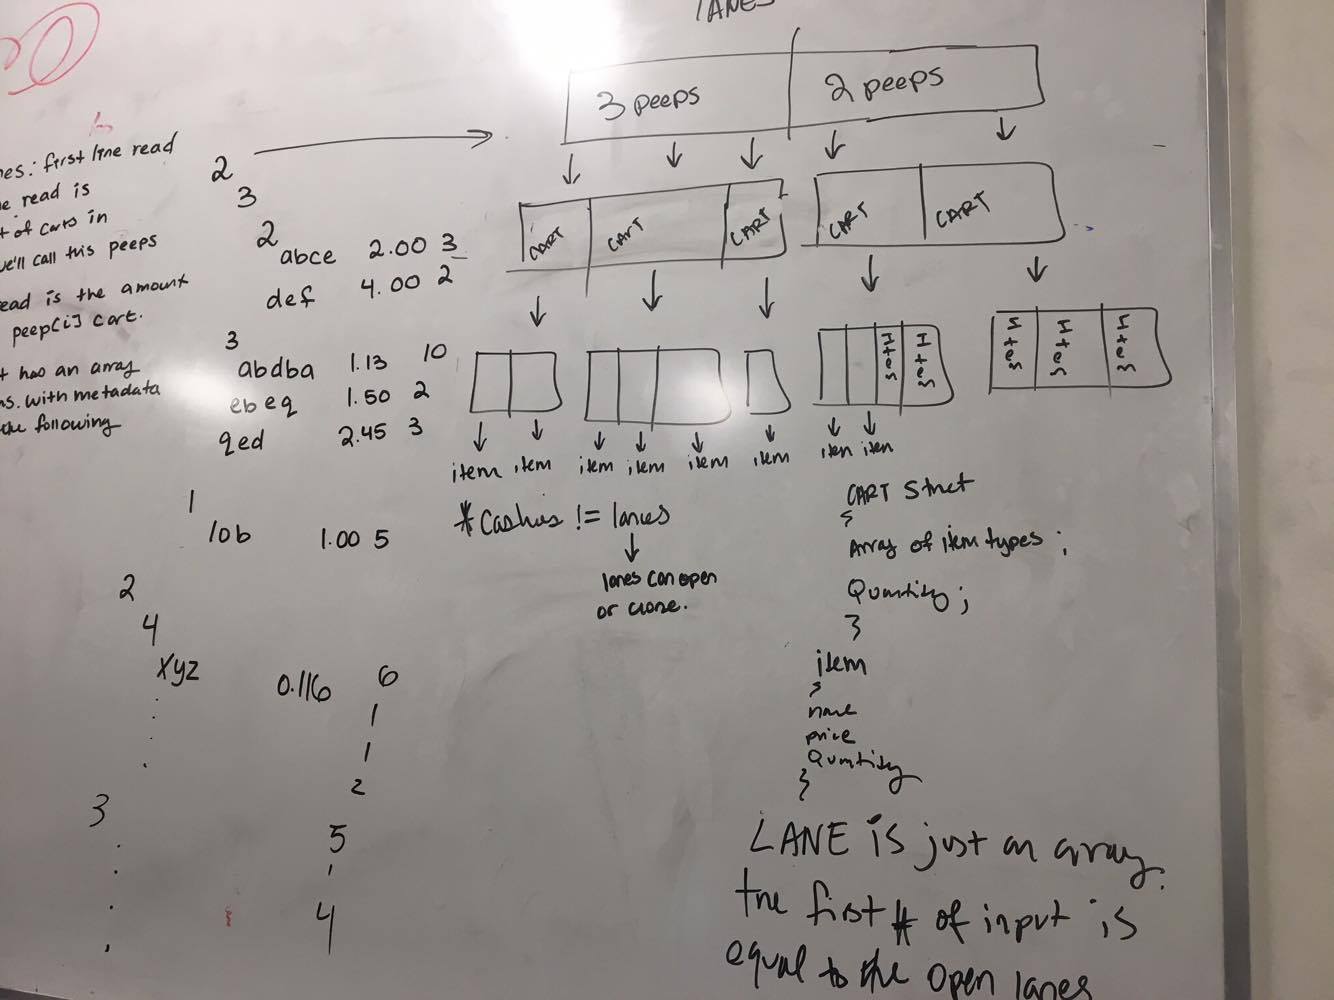 LANES
3 peeps
2 peeps
nes: first line read
e read is
t of carts in
we'll call this peeps
ead is the amount
peep[i] cart.
t has an array
ms. with metadata
the following
2
3
2
abce 2.00 3
def 4.00 2
3
abdba 1.13 10
ebeq 1.50 2
qed 2.45 3
1
lob 1.00 5
2
4
xyz 0.116 6
1
1
2
3
5
4
CART
CART
CART
CART
CART
Item
Item
Item
Item
Item
item
item
item
item
item
item
item
item
* != lanes
lanes can open
or
CART Struct
{
Array of item types;
Quantity;
}
item
{
name
price
Quantity
}
LANE is just an array.
the first # of input is
equal to the open lanes